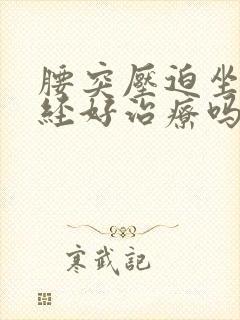 腰突壓迫坐
経好治療吗
寒武記